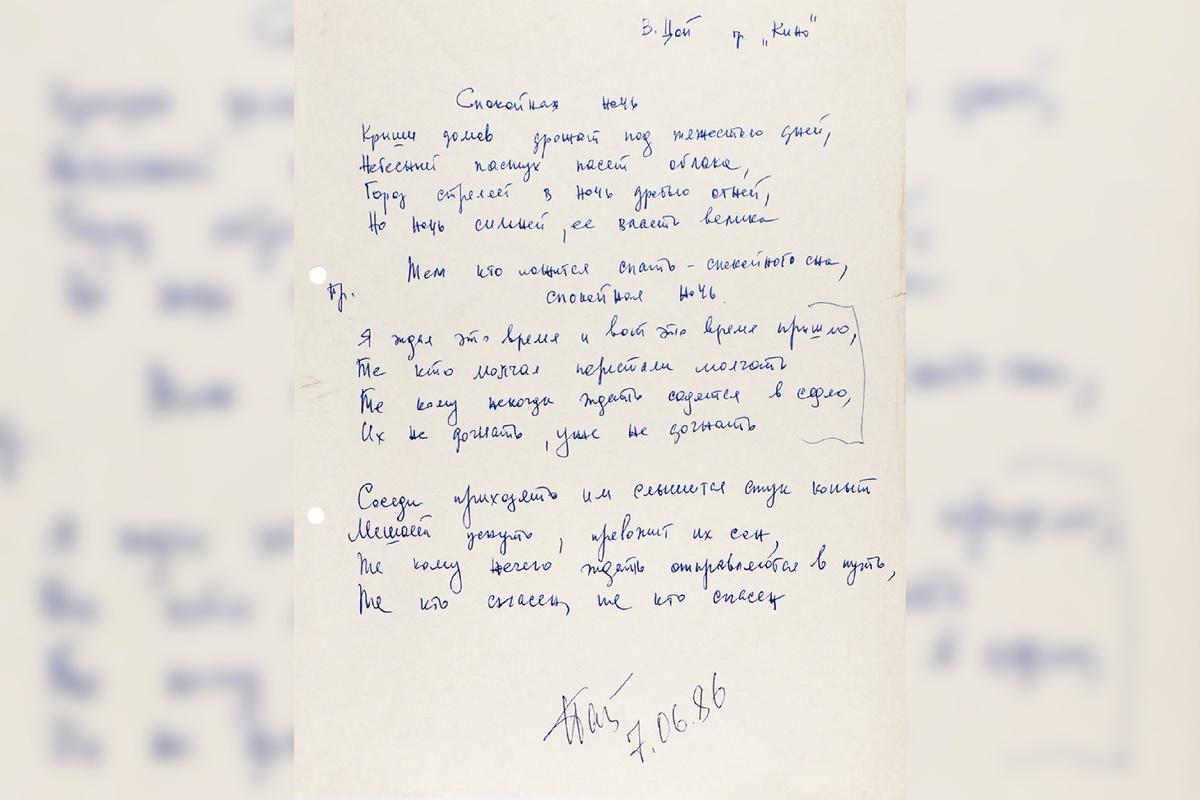 В. Цой гр „Кино"
Спокойная ночь
Крыши домов дрожат под тяжестью дней,
Небесный пастух пасет облака,
Город стреляет в ночь дробью огней,
Но ночь сильней, ее власть велика
Тем кто ложится спать – спокойного сна,
Пр.
спокойная ночь.
Я ждал это время и вот это время пришло,
Те кто молчал перестали молчать
Те кому некогда ждать садятся в седло,
Их не догнать, уже не догнать
Соседи приходят им слышится стук копыт
Мешает уснуть, тревожит их сон,
Те кому нечего ждать отправляются в путь,
Те кто спасен, те кто спасен
Цой
7.06.86